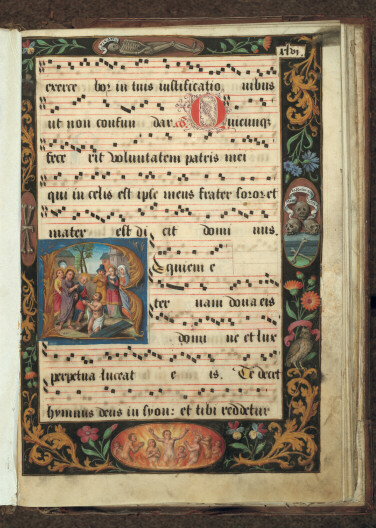 exerce bor in tuis iustificatio nibus
ut non confun dar. co Quicunq
fece rit voluntatem patris mei
qui in celis est ipse meus frater soror et
mater est di cit domi nus.
Requiem e
ter nam dona eis
domi ne et lux
perpetua luceat e is. Te decet
hymnus deus in syon: et tibi reddetur